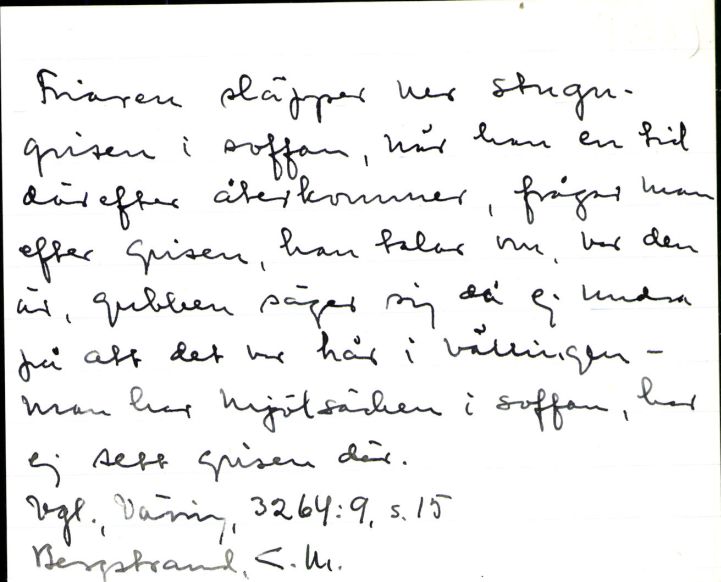 Friaren släpper ner stugu-
grisen i soffan, när han en tid
därefter återkommer, frågar man
efter grisen, han talar om, var den
är, gubben säger sig då ej undra
på att det var hår i vällingen -
man har mjölsäcken i soffan, har
ej sett grisen där.
Vgl., Väring, 3264:9, s. 15
Bergstrand, C.M.